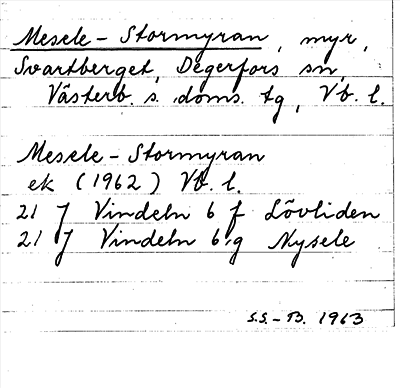 Mesele - Stormyran, myr,
Svartberget, Degerfors sn,
Västerb. s. doms. tg, Vb. l.
Mesele - Stormyran
ek (1962) Vb. l.
21 J Vindeln 6 f Lövliden
21 J Vindeln 6 g Nysele
S.S. - B. 1963